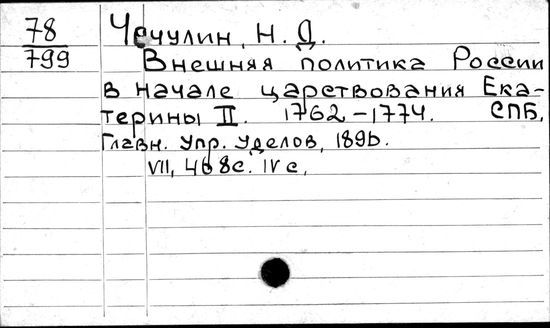 78
799
Чечулин, Н. Д.
Внешняя политика России
в начале царствования Ека-
терины II. 1762-1774. СПБ,
Главн. Упр. Уделов, 1896.
VII, 468с. IV с,